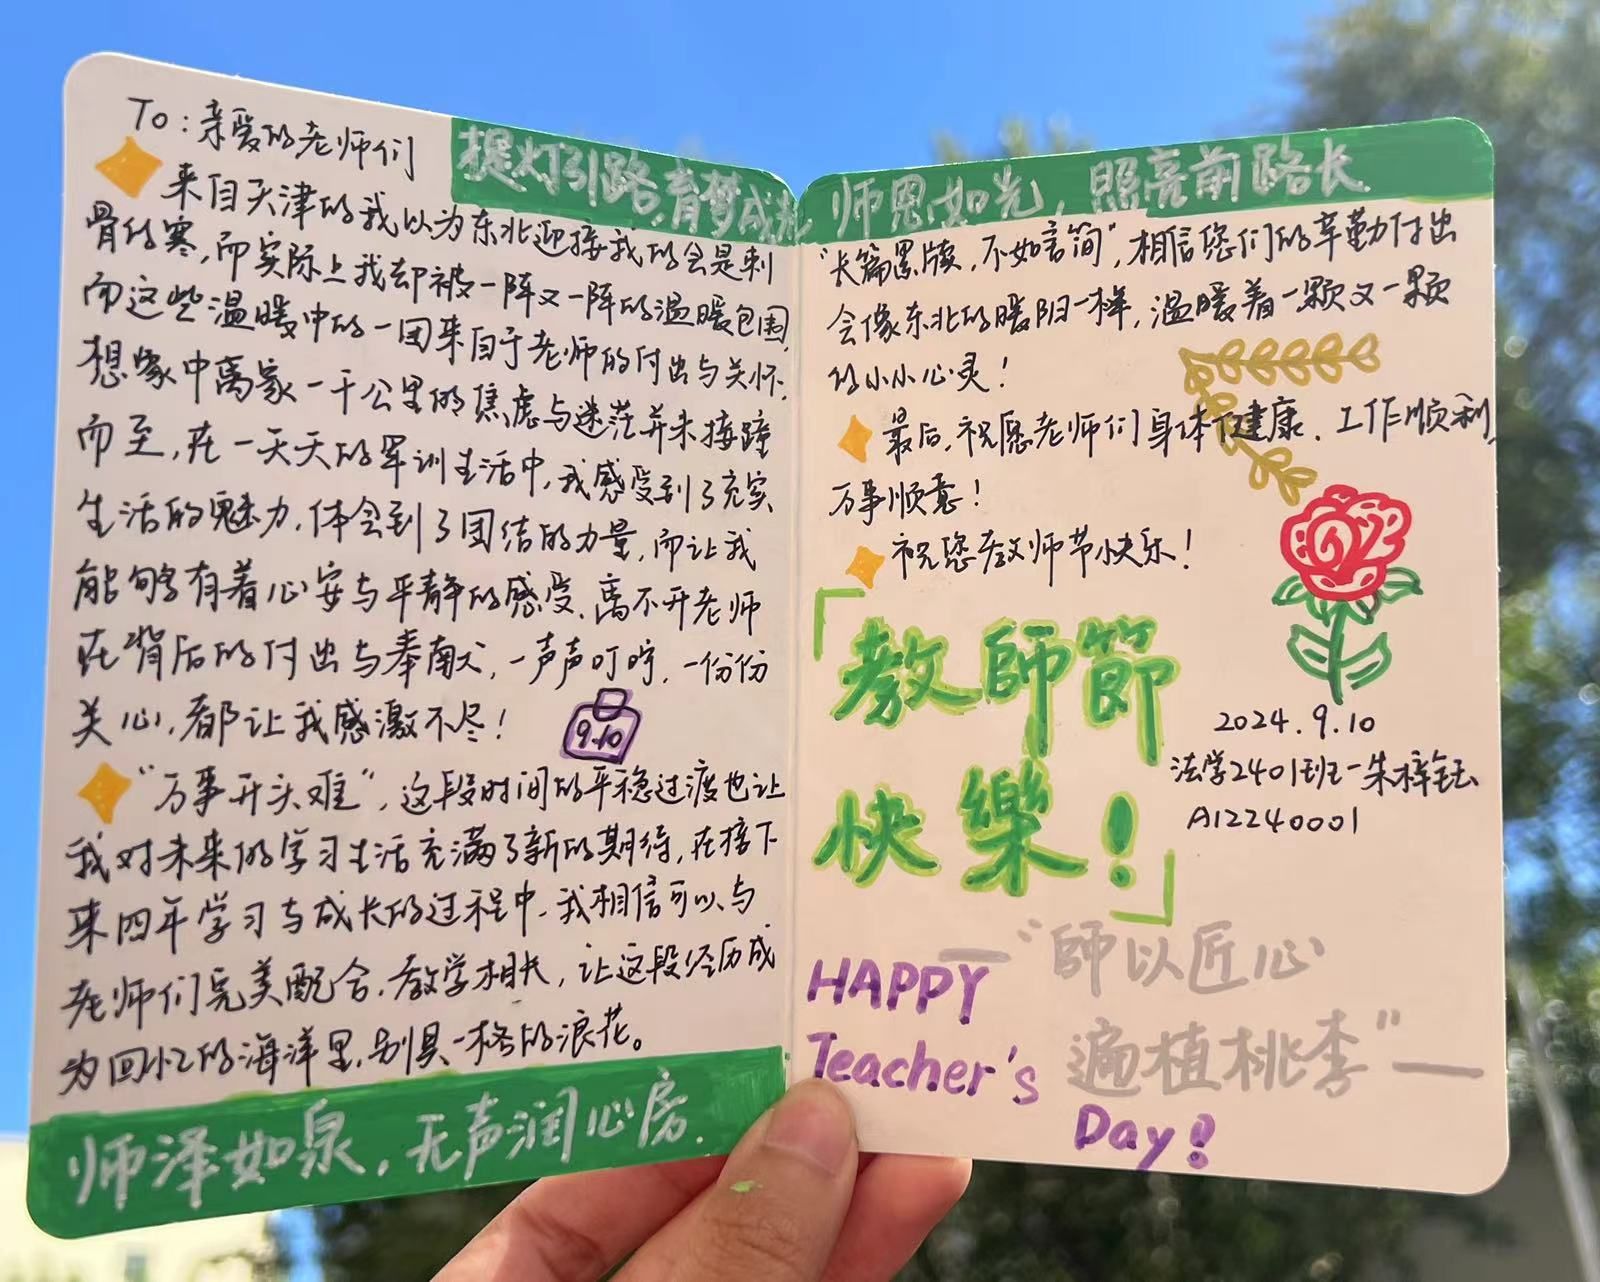 To：亲爱的老师们
提灯引路，育梦成光
来自天津的我以为东北迎接我的会是刺
骨的寒，而实际上我却被一阵又一阵的温暖包围，
而这些温暖中的一团来自于老师的付出与关怀．
想象中离家一千公里的焦虑与迷茫并未接踵
而至，在一天天的军训生活中，我感受到了充实
生活的魅力，体会到了团结的力量，而让我
能够有着心安与平静的感受，离不开老师
在背后的付出与奉献，一声声叮咛，一份份
关心，都让我感激不尽！
9.10
“万事开头难”，这段时间的平稳过渡也让
我对未来的学习生活充满了新的期待，在接下
来四年学习与成长的过程中，我相信可以与
老师们完美配合，教学相长，让这段经历成
为回忆的海洋里，别具一格的浪花。
师泽如泉，无声润心房．
师恩如光，照亮前路长．
“长篇累牍，不如言简”，相信您们的辛勤付出
会像东北的暖阳一样，温暖着一颗又一颗
的小小心灵！
最后，祝愿老师们身体健康、工作顺利，
万事顺意！
祝您教师节快乐！
「教師節
快樂！」
2024.9.10
法学2401班-朱梓钰
A12240001
—“師以匠心
遍植桃李”—
HAPPY
Teacher's
Day!